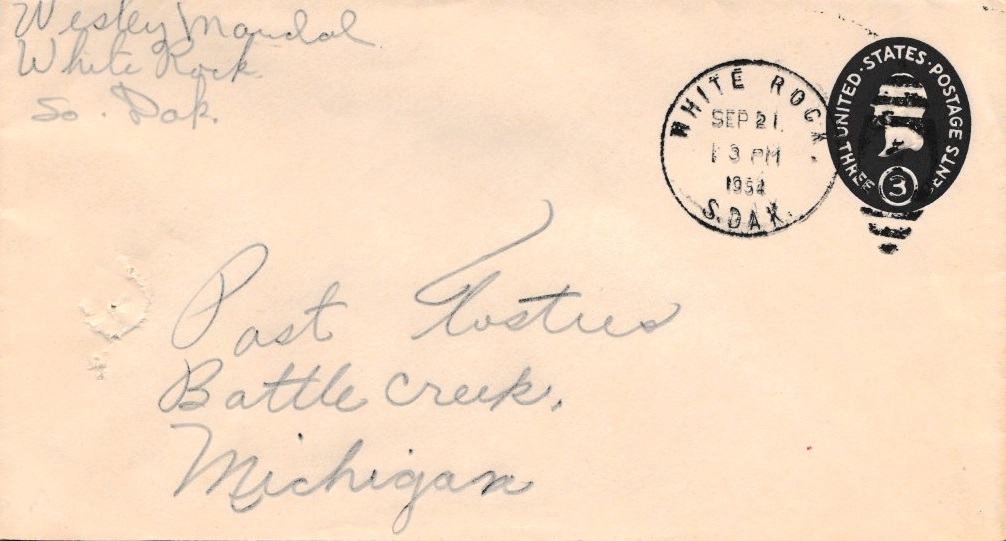 Wesley Mandal
White Rock
So. Dak.
WHITE ROCK
SEP 21
3 PM
1954
S. DAK.
UNITED·STATES·POSTAGE
THREE CENTS
3
Post Tosties
Battle Creek,
Michigan